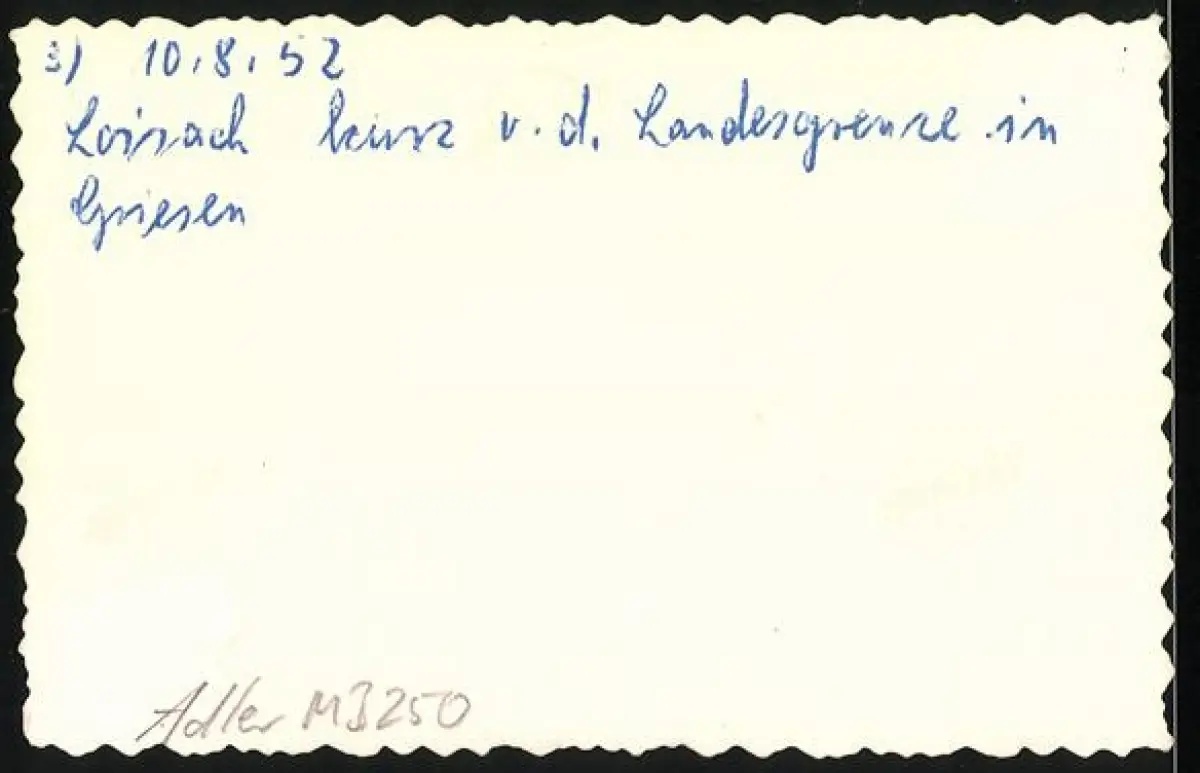 3) 10.8.52
Loisach kurz v.d. Landesgrenze in
Griesen
Adler MB250